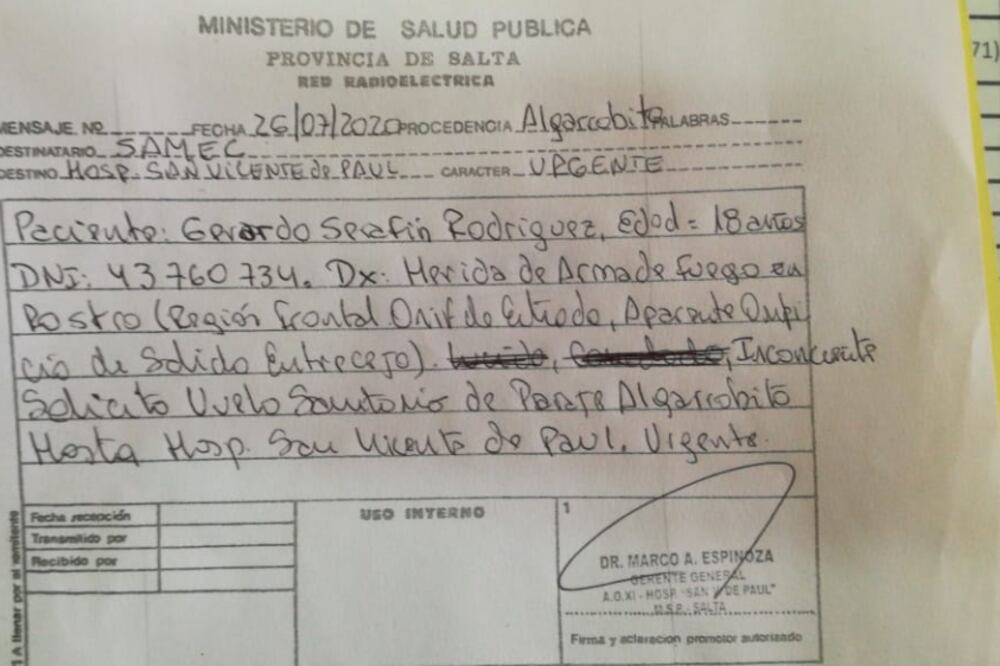 MINISTERIO DE SALUD PUBLICA
PROVINCIA DE SALTA
RED RADIOELECTRICA
71)
MENSAJE Nº FECHA 26/07/2020 PROCEDENCIA Algarrobito PALABRAS
DESTINATARIO SAMEC
DESTINO HOSP. SAN VICENTE de PAUL CARACTER URGENTE
Paciente: Gerardo Serafin Rodriguez, Edad = 18 años
DNI: 43760734. Dx: Herida de Arma de fuego en
Rostro (Región frontal Orif de Entrada, Aparente Orifi
cio de Salida Entrecejo). Inconciente
Solicito Vuelo Sanitario de Paraje Algarrobito
Hasta Hosp. San Vicente de Paul. Urgente.
A llenar por el remitente
Fecha recepción
Transmitido por
Recibido por
USO INTERNO
1
DR. MARCO A. ESPINOZA
GERENTE GENERAL
A.O.XI - HOSP. "SAN V. DE PAUL"
M.S.P. - SALTA
Firma y aclaracion promotor autorizado